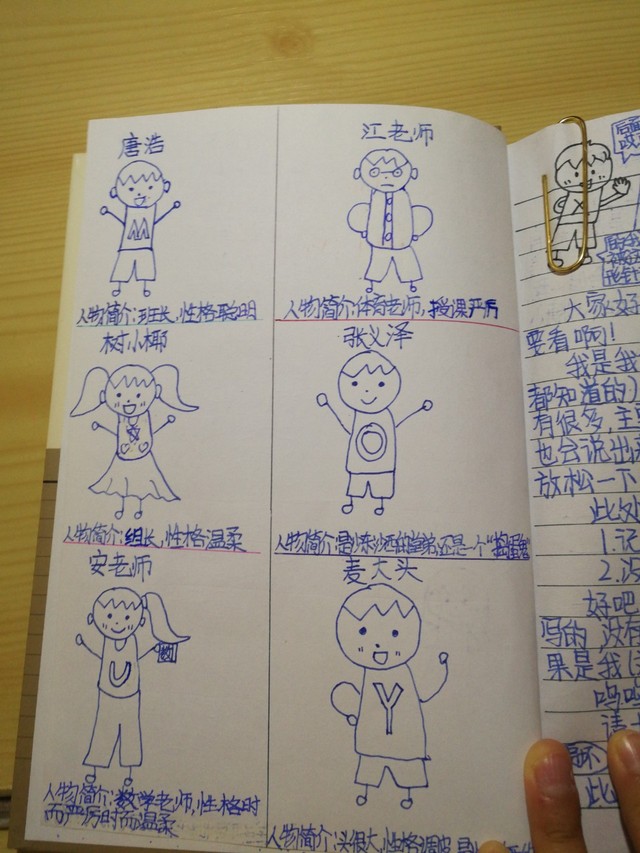 唐浩
江老师
人物简介:班长,性格聪明
人物简介:体育老师,授课严厉
树小椰
张义泽
人物简介:组长,性格温柔
人物简介:是 还是一个"捣蛋鬼
安老师
麦大头
人物简介:数学老师,性格时
而严厉时而温柔
人物简介:头很大,性格调皮
M
U
Y
大家好
要看啊!
我是我
都知道的
有很多,主
也会说出
放松一下
此处
1.记
2.没
好吧
吗的 没有
果是我
呜呜
请
此